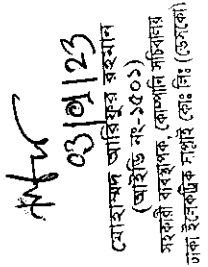 03/01/23
মোহাম্মদ আরিফুর রহমান
(আইডি নং-১৫০১)
সহকারী ব্যবস্থাপক, কোম্পানি সচিবালয়
ঢাকা ইলেকট্রিক সাপ্লাই কোঃ লিঃ (ডেসকো)